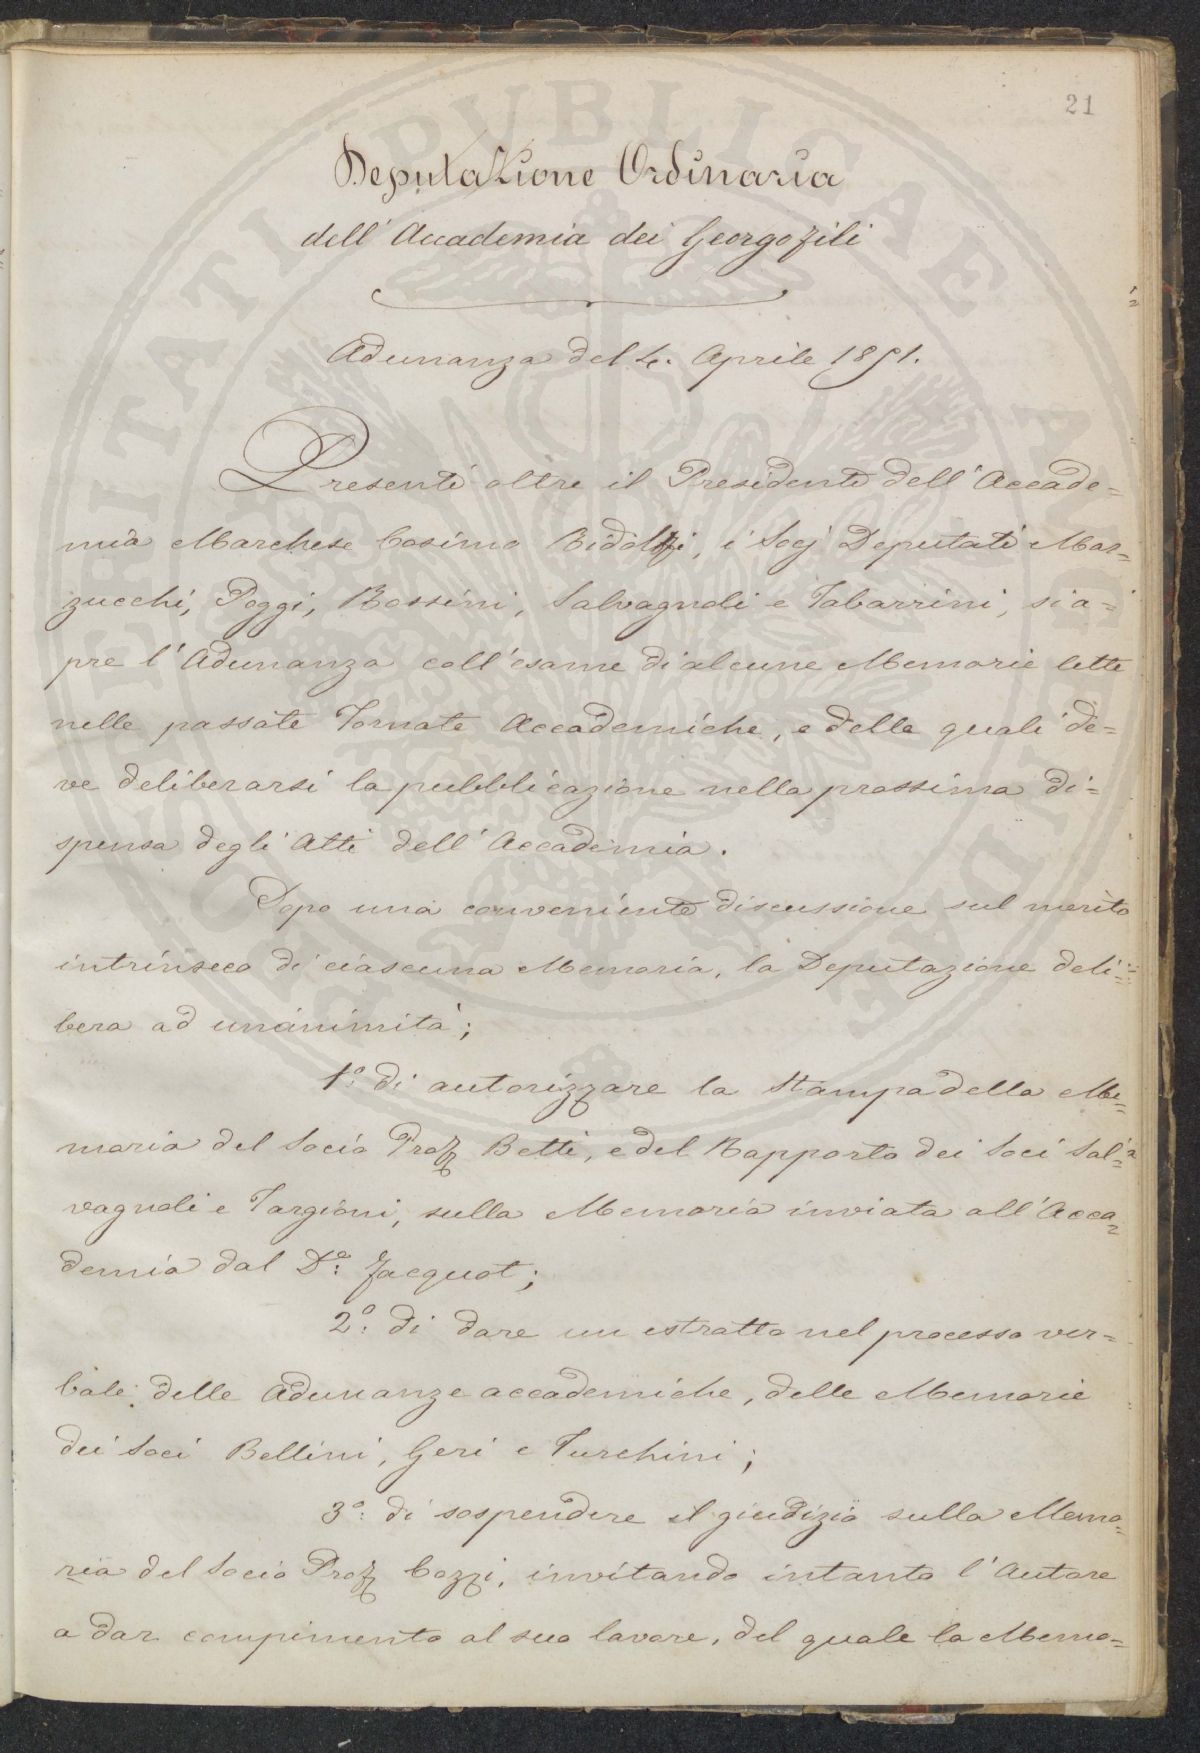 21
Deputazione Ordinaria
dell'Accademia dei Georgofili
Adunanza del 4. Aprile 1851.
Presenti oltre il Presidente dell'Accade=
mia Marchese Cosimo Ridolfi, i Socj Deputati Mar=
zucchi, Poggi, Rossini, Salvagnoli e Tabarrini, si a=
pre l'Adunanza coll'esame di alcune Memorie lette
nelle passate Tornate Accademiche, e delle quali de=
ve deliberarsi la pubblicazione nella prossima di=
spensa degli Atti dell'Accademia.
Dopo una conveniente discussione sul merito
intrinseco di ciascuna Memoria, la Deputazione deli=
bera ad unanimità;
1.º di autorizzare la Stampa della Me=
moria del Socio Prof. Betti, e del Rapporto dei Soci Sal=
vagnoli e Targioni, sulla Memoria inviata all'Acca=
demia dal D.e Jacquot;
2.º di dare un estratto nel processo ver=
bale delle Adunanze accademiche, delle Memorie
dei Soci Bellini, Geri e Turchini;
3.º di sospendere il giudizio sulla Memo=
ria del Socio Prof. Cozzi, invitando intanto l'Autore
a dar compimento al suo lavoro, del quale la Memo=